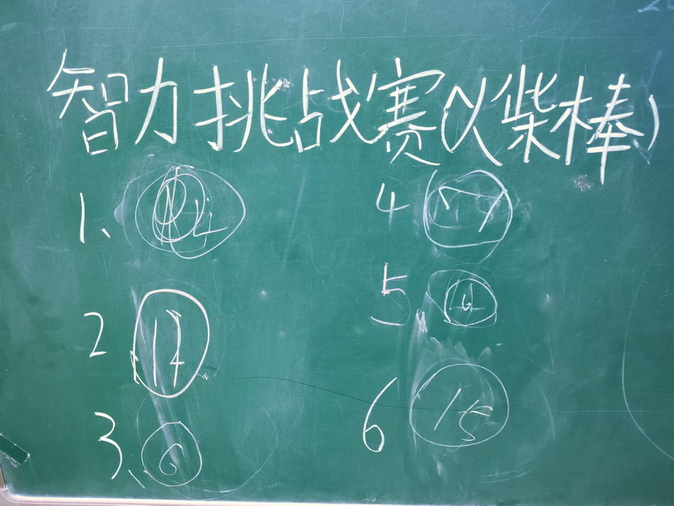 智力挑战赛(火柴棒)
1、
2 17
3、6
4 17
5
6 15